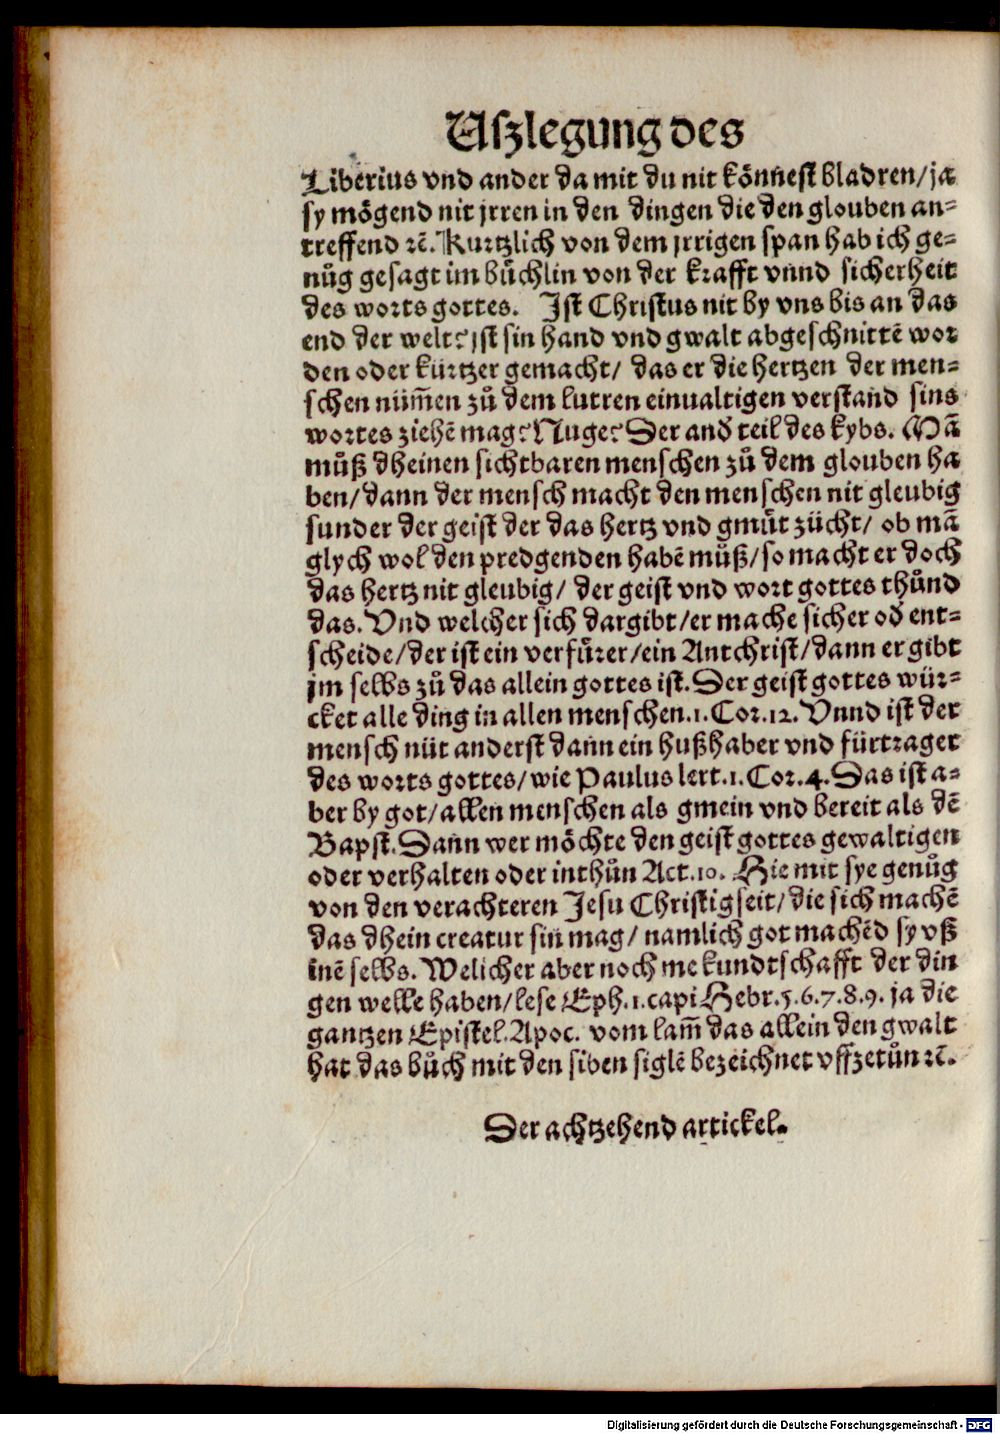 Uſzlegung des
Liberius vnd ander da mit du nit könneſt bladren/ja
ſy mögend nit jrren in den dingen die den glouben an⸗
treffend ꝛc̄. Kurtzlich von dem jrrigen ſpan hab ich ge⸗
nůg geſagt im bůchlin von der krafft vnnd ſicherheit
des worts gottes. Iſt Chriſtus nit by vns bis an das
end der welt? iſt ſin hand vnd gwalt abgeſchnittē wor
den oder kürtzer gemacht/ das er die hertzen der men⸗
ſchen nüm̄en zů dem lutren einualtigen verſtand ſins
wortes ziehē mag? Nuge? Der and̕ teil des kybs. Mā
můß dheinen ſichtbaren menſchen zů dem glouben ha
ben/dann der menſch macht den menſchen nit gleubig
ſunder der geiſt der das hertz vnd gmüt zücht/ ob mā
glych wol den predgenden habē můß/ſo macht er doch
das hertz nit gleubig/ der geiſt vnd wort gottes thůnd
das. Vnd welcher ſich dargibt/er mache ſicher od̕ ent⸗
ſcheide/der iſt ein verfürer/ein Antchriſt/dann er gibt
jm ſelbs zů das allein gottes iſt. Der geiſt gottes wür⸗
cket alle ding in allen menſchen.1.Cor.12. Vnnd iſt der
menſch nüt anderſt dann ein hußhaber vnd fürtrager
des worts gottes/wie Paulus lert.1.Cor.4. Das iſt a⸗
ber by got/allen menſchen als gmein vnd bereit als dē
Bapſt. Dann wer möchte den geiſt gottes gewaltigen
oder verhalten oder inthůn Act.10. Hie mit ſye genůg
von den verachteren Jeſu Chriſti gſeit/die ſich machē
das dhein creatur ſin mag/ namlich got machēd ſy vß
inē ſelbs. Welicher aber noch me kundtſchafft der din
gen welle haben/leſe Eph.1.capi Hebr.5.6.7.8.9. ja die
gantzen Epiſtel. Apoc. vom lam̄ das allein den gwalt
hat das bůch mit den ſiben ſiglē bezeichnet vffzetůn ꝛc̄.
Der achtzehend artickel.
Digitalisierung gefördert durch die Deutsche Forschungsgemeinschaft - DFG